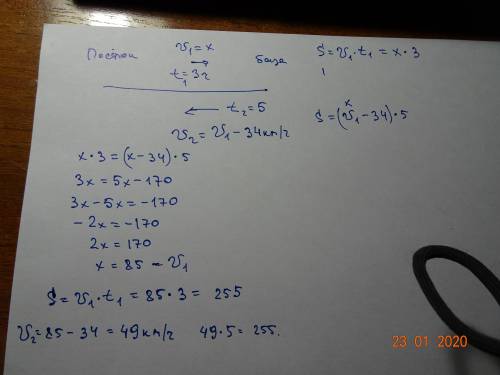 Посёлок v₁ = x База S = v₁ · t₁ = x · 3
→
t₁ = 3ч
← t₂ = 5
v₂ = v₁ − 34км/ч
x
S = (v₁ − 34) · 5
x · 3 = (x − 34) · 5
3x = 5x − 170
3x − 5x = −170
− 2x = −170
2x = 170
x = 85 − v₁
S = v₁ · t₁ = 85 · 3 = 255
v₂ = 85 − 34 = 49км/ч 49 · 5 = 255.
23 01 2020